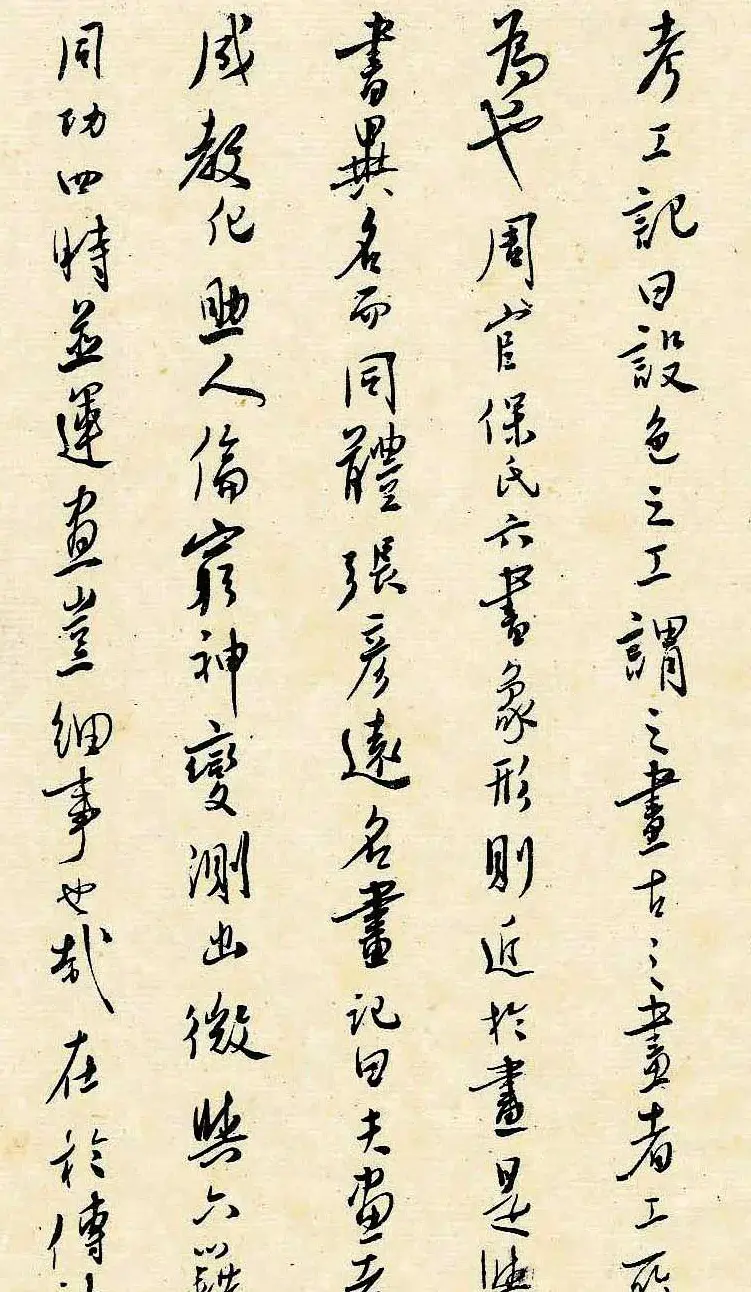 考工記曰設色之工謂之畫古之畫者工所
為也周官保氏六書象形則近於畫是
書異名而同體張彥遠名畫記曰夫畫者
成教化助人倫窮神變測幽微與六籍
同功四時並運畫豈細事也哉在於傳